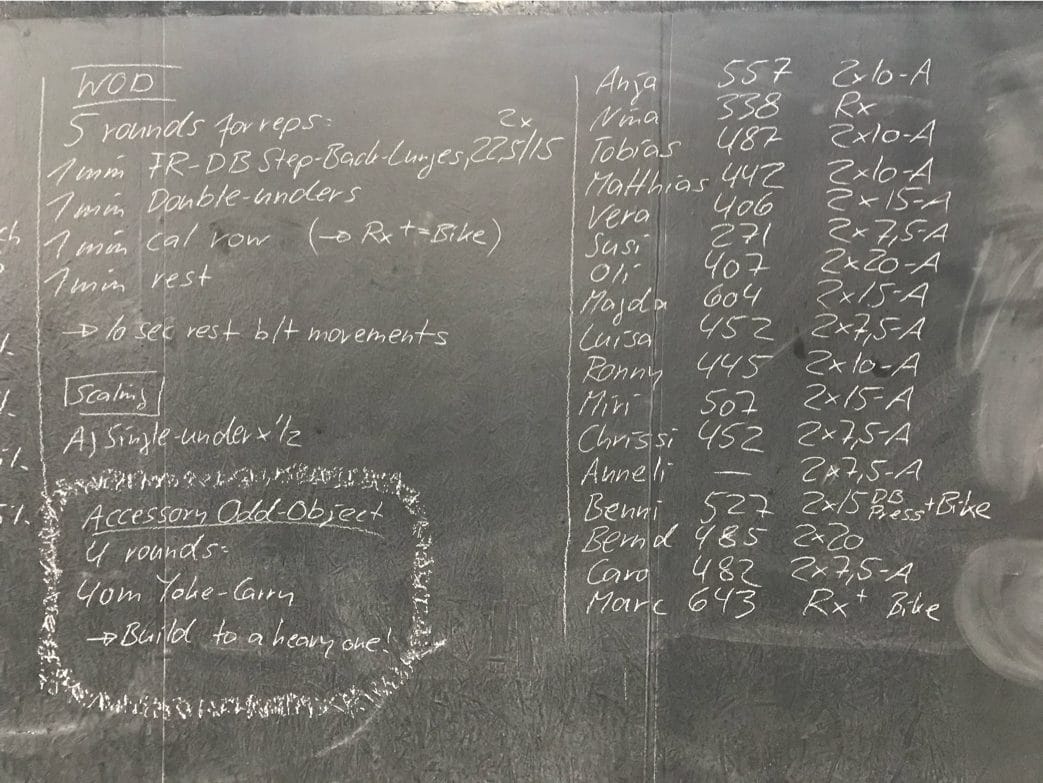 WOD
5 rounds for reps:
2x
1 min FR-DB Step-Back-Lunges, 22,5/15
1 min Double-unders
1 min cal row (→ Rx+ = Bike)
1 min rest
→ 10 sec rest b/t movements
Scaling
A) Single-under x 1/2
Accessory Odd-Object
4 rounds:
40m Yoke-Carry
→ Build to a heavy one!
Anja 557 2x10-A
Nina 338 Rx
Tobias 487 2x10-A
Matthias 442 2x10-A
Vera 406 2x15-A
Susi 271 2x7,5-A
Oli 407 2x20-A
Majda 604 2x15-A
Luisa 452 2x7,5-A
Ronny 445 2x10-A
Miri 507 2x15-A
Chrissi 452 2x7,5-A
Anneli — 2x7,5-A
Benni 527 2x15 DB Press + Bike
Bernd 485 2x20
Caro 482 2x7,5-A
Marc 643 Rx+ Bike